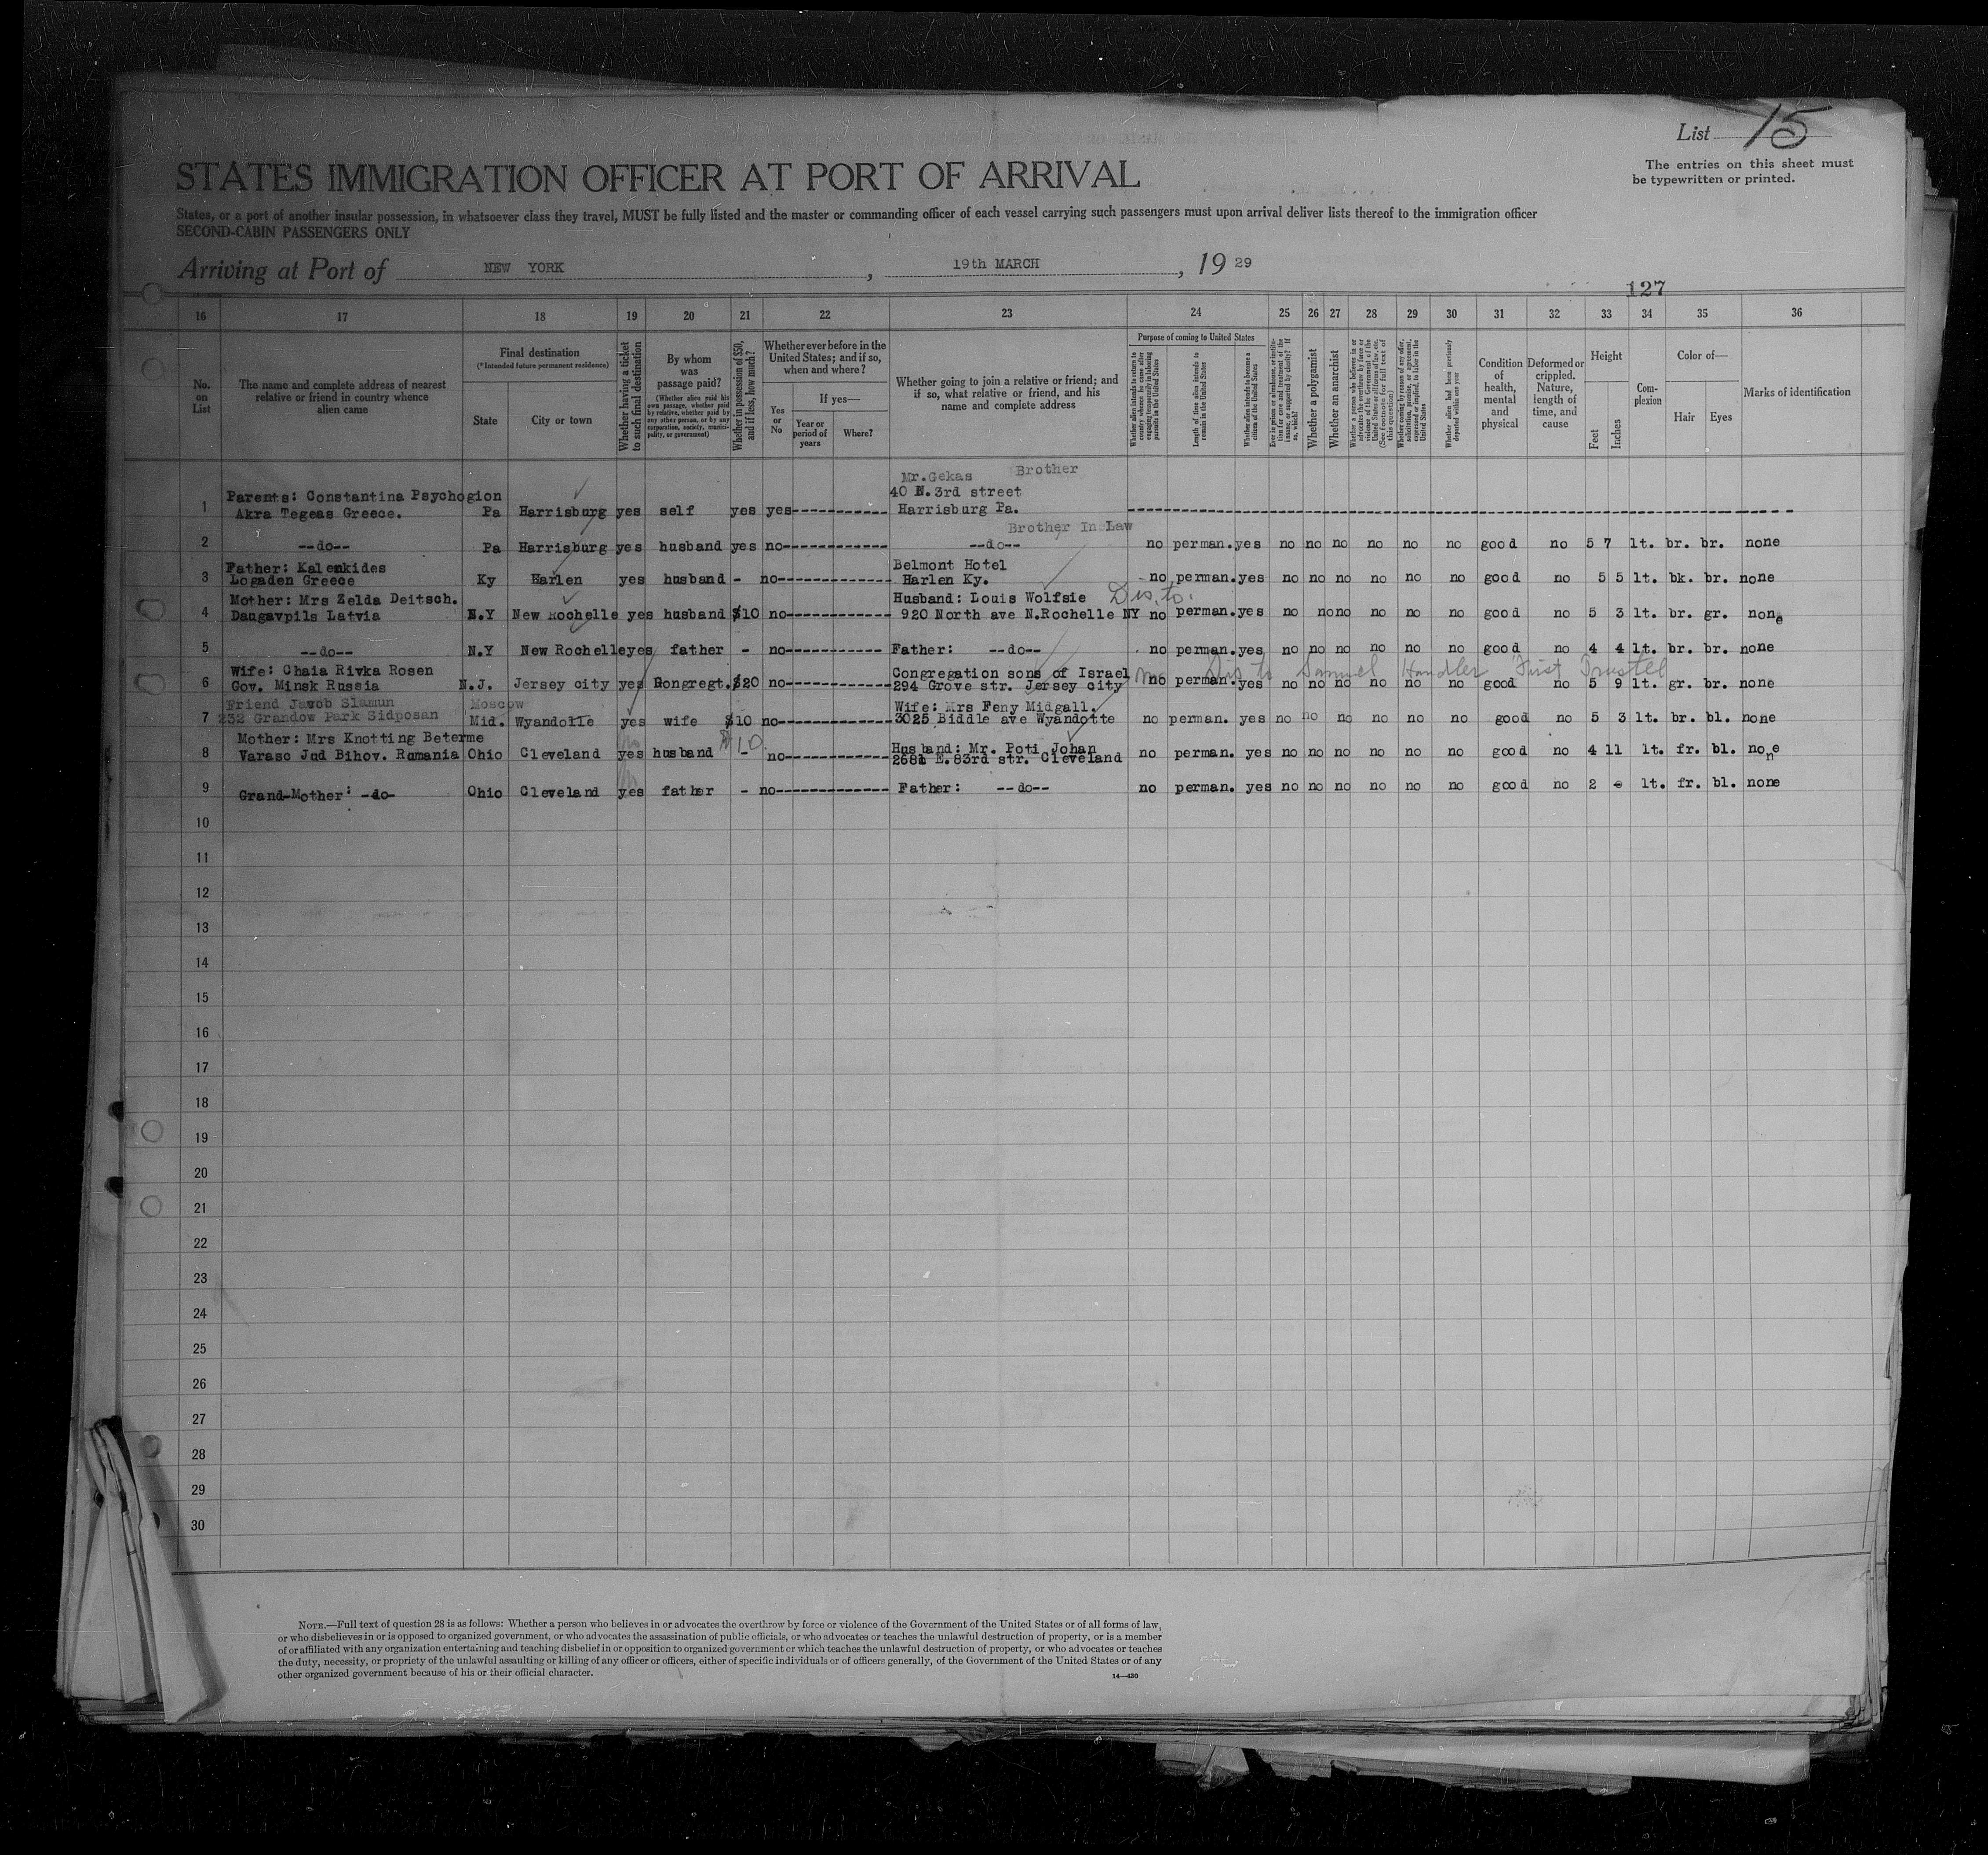 List 15
The entries on this sheet must
be typewritten or printed.
STATES IMMIGRATION OFFICER AT PORT OF ARRIVAL
States, or a port of another insular possession, in whatsoever class they travel, MUST be fully listed and the master or commanding officer of each vessel carrying such passengers must upon arrival deliver lists thereof to the immigration officer
SECOND-CABIN PASSENGERS ONLY
Arriving at Port of NEW YORK, 19th MARCH, 19 29
127
16 17 18 19 20 21 22 23 24 25 26 27 28 29 30 31 32 33 34 35 36
No. on List
The name and complete address of nearest relative or friend in country whence alien came
Final destination
(*Intended future permanent residence)
State
City or town
Whether having a ticket to such final destination
By whom was passage paid?
(Whether alien paid his own passage, whether paid by relative, whether paid by any other person, or by any corporation, society, municipality, or government)
Whether in possession of $50, and if less, how much?
Whether ever before in the United States; and if so, when and where?
Yes or No
If yes—
Year or period of years
Where?
Whether going to join a relative or friend; and if so, what relative or friend, and his name and complete address
Purpose of coming to United States
Whether alien intends to return to country whence he came after engaging temporarily in laboring pursuits in the United States
Length of time alien intends to remain in the United States
Whether alien intends to become a citizen of the United States
Whether a polygamist
Whether an anarchist
Whether alien had been previously deported within one year
Condition of health, mental and physical
Deformed or crippled. Nature, length of time, and cause
Height
Feet
Inches
Complexion
Color of—
Hair
Eyes
Marks of identification
Mr. Gekas Brother
1 Parents: Constantina Psychogion 40 N. 3rd street
Akra Tegeas Greece. Pa Harrisburg yes self yes yes Harrisburg Pa.
Brother In Law
2 --do-- Pa Harrisburg yes husband yes no --do-- no perman. yes no no no no no no good no 5 7 lt. br. br. none
3 Father: Kalenkides Belmont Hotel
Logaden Greece Ky Harlen yes husband - no Harlen Ky. no perman. yes no no no no no no good no 5 5 lt. bk. br. none
4 Mother: Mrs Zelda Deitsch. Husband: Louis Wolfsie Dis. to.
Daugavpils Latvia N.Y New Rochelle yes husband $10 no 920 North ave N.Rochelle NY no perman. yes no no no no no no good no 5 3 lt. br. gr. none
5 --do-- N.Y New Rochelle yes father - no Father: --do-- no perman. yes no no no no no no good no 4 4 lt. br. br. none
6 Wife: Chaia Rivka Rosen Congregation sons of Israel Dis to Samuel Handler First Trustee
Gov. Minsk Russia N.J. Jersey city yes Congregt. $20 no 294 Grove str. Jersey city no perman. yes no no no no no no good no 5 9 lt. gr. br. none
7 Friend Jacob Slamun Moscow Wife: Mrs Feny Midgall.
232 Grandow Park Sidposan Mid. Wyandotte yes wife $10 no 3025 Biddle ave Wyandotte no perman. yes no no no no no no good no 5 3 lt. br. bl. none
8 Mother: Mrs Knotting Beterme $10 Husband: Mr. Poti Johan
Varaso Jud Bihov. Rumania Ohio Cleveland yes husband - no 2681 E. 83rd str. Cleveland no perman. yes no no no no no no good no 4 11 lt. fr. bl. none
9 Grand-Mother: -do- Ohio Cleveland yes father - no Father: --do-- no perman. yes no no no no no no good no 2 - lt. fr. bl. none
10
11
12
13
14
15
16
17
18
19
20
21
22
23
24
25
26
27
28
29
30
NOTE.—Full text of question 28 is as follows: Whether a person who believes in or advocates the overthrow by force or violence of the Government of the United States or of all forms of law,
or who disbelieves in or is opposed to organized government, or who advocates the assassination of public officials, or who advocates or teaches the unlawful destruction of property, or is a member
of or affiliated with any organization entertaining and teaching disbelief in or opposition to organized government or which teaches the unlawful destruction of property, or who advocates or teaches
the duty, necessity, or propriety of the unlawful assaulting or killing of any officer or officers, either of specific individuals or of officers generally, of the Government of the United States or of any
other organized government because of his or their official character.
14—430